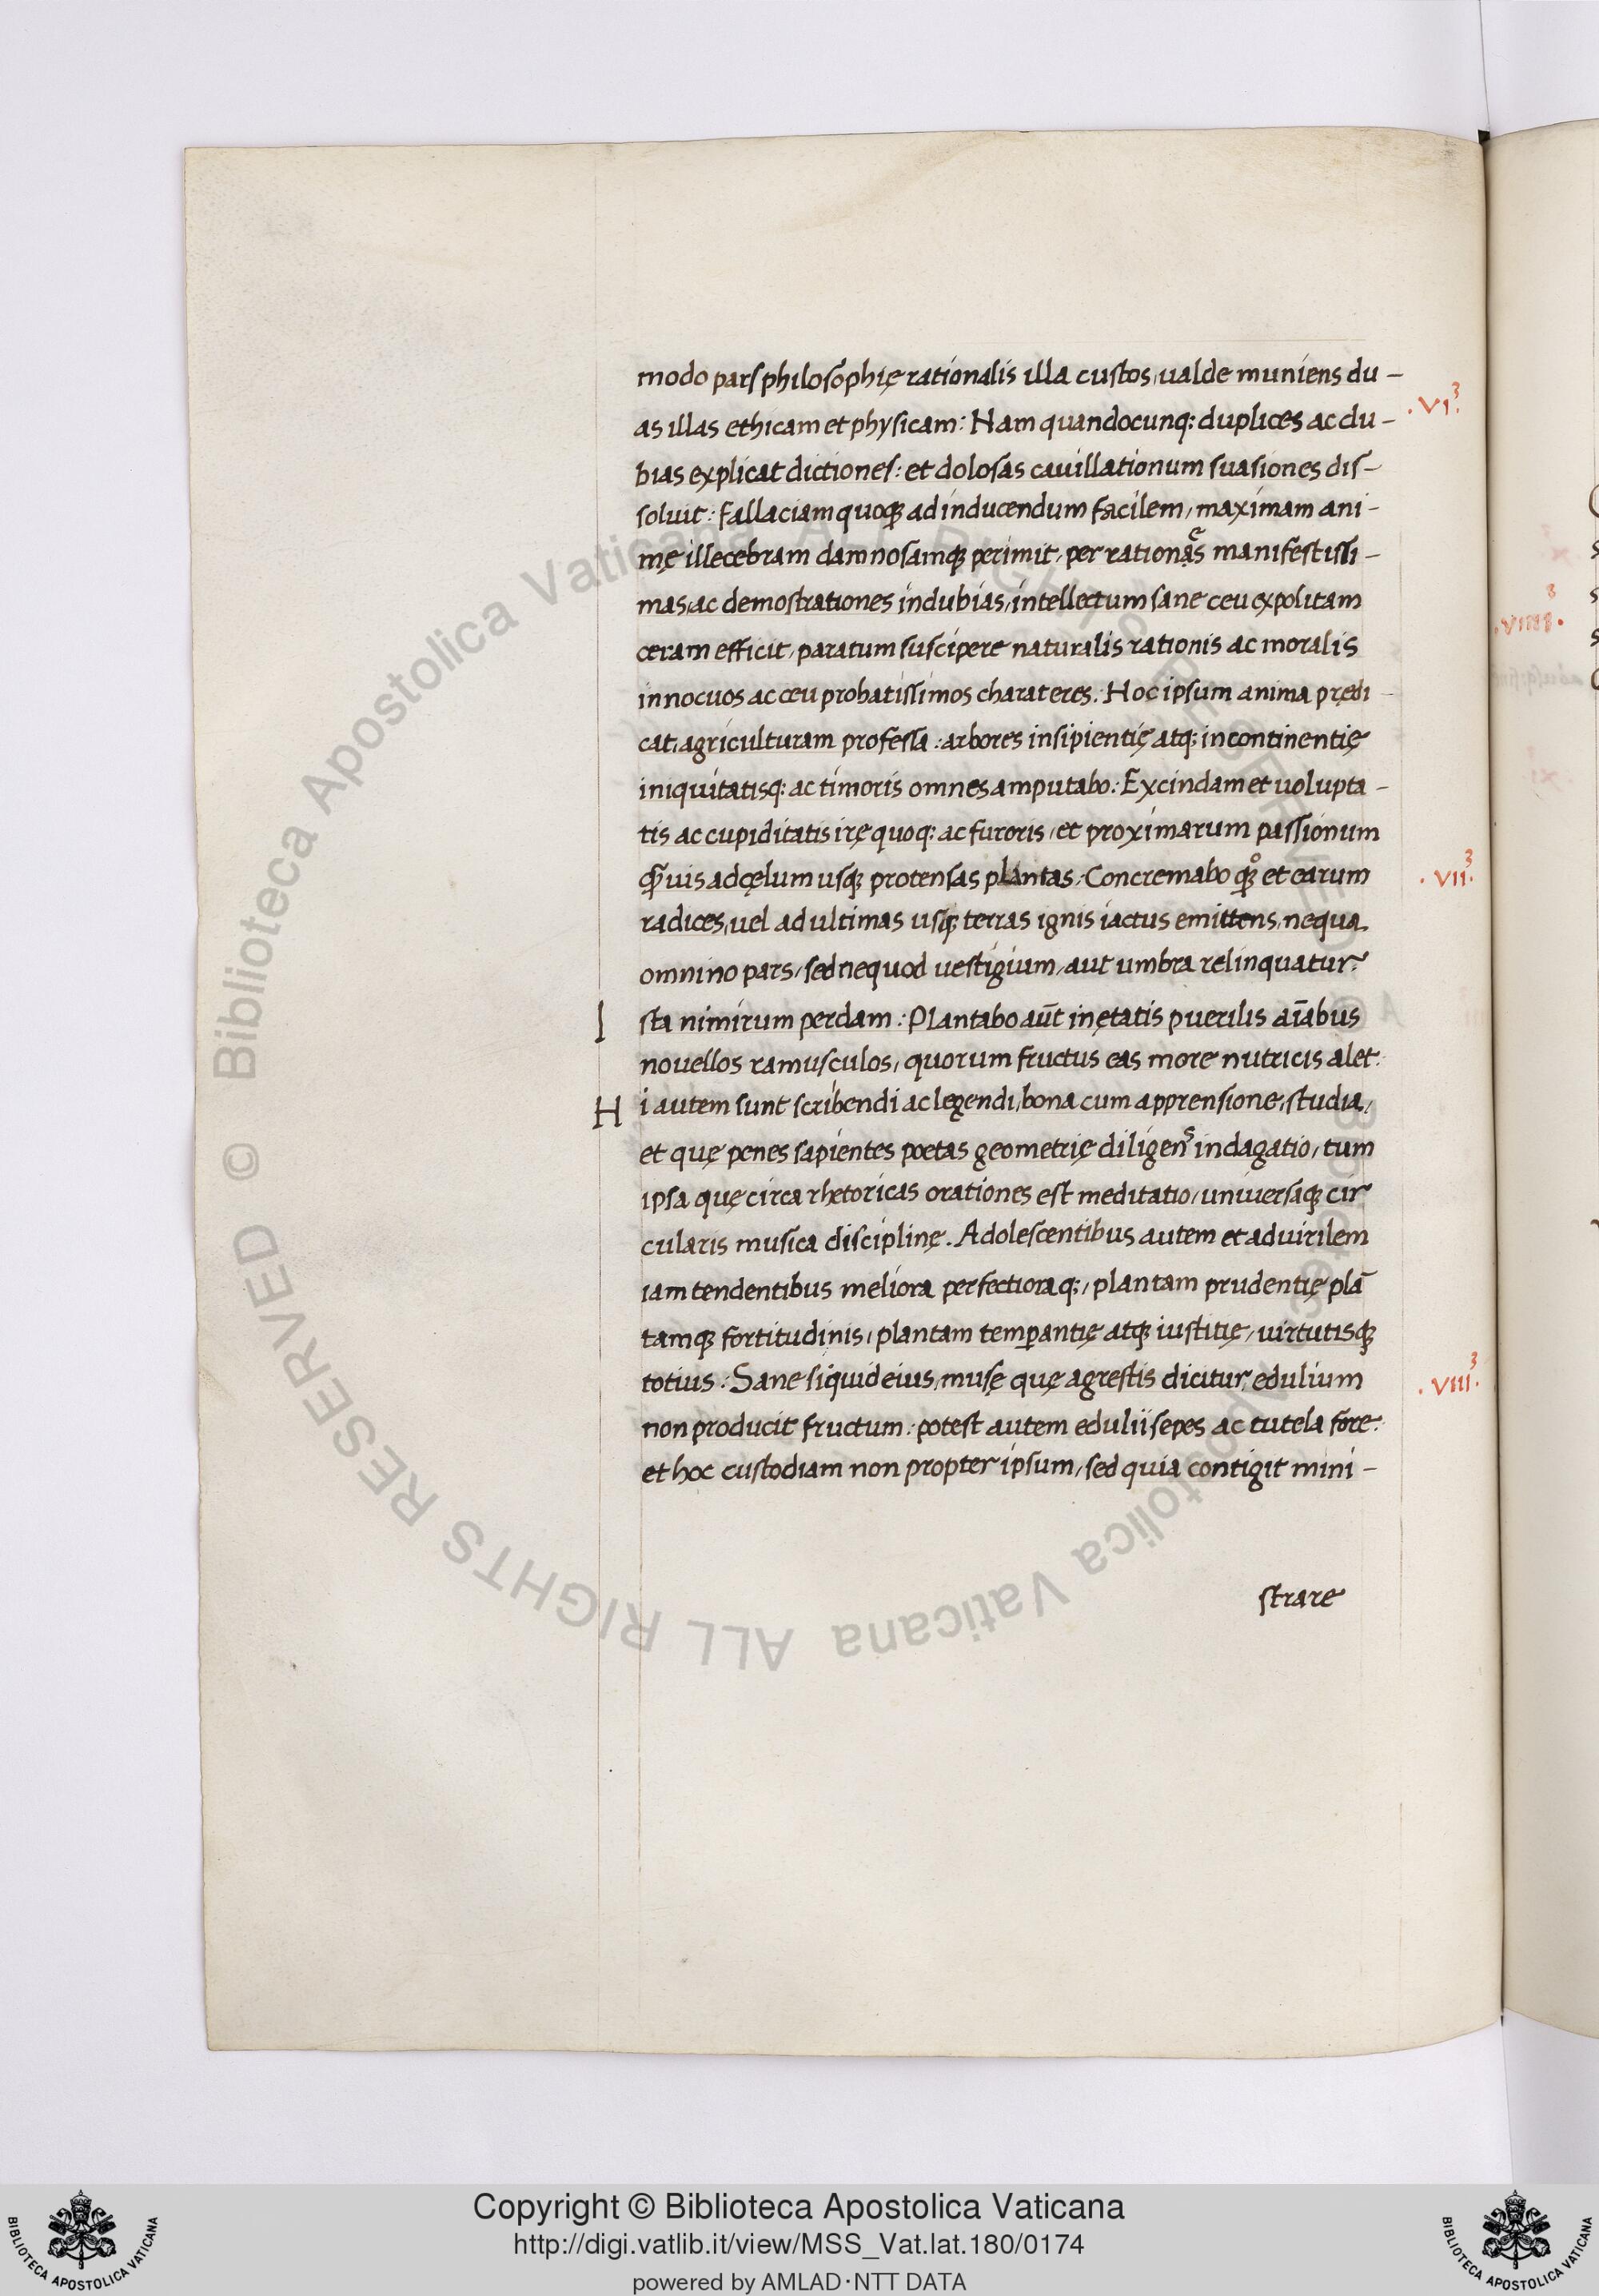 modo pars philosophię rationalis illa custos, ualde muniens du-
as illas ethicam et physicam: Nam quandocunq; duplices ac du-
bias explicat dictiones: et dolosas cauillationum suasiones dis-
soluit: fallaciam quoq; ad inducendum facilem, maximam ani-
mę illecebram damnosamq; perimit, per rationąs manifestissi-
e
mas, ac demostrationes indubias, intellectum sane ceu expolitam
ceram efficit, paratum suscipere naturalis rationis ac moralis
innocuos ac ceu probatissimos charateres. Hoc ipsum anima prędi-
cat, agriculturam professa: arbores insipientię atq; incontinentię
iniquitatisq; ac timoris omnes amputabo: Excindam et uolupta-
tis ac cupiditatis irę quoq; ac furoris, et proximarum passionum
q̃uis ad cęlum usq; protensas plantas: Concremabo q°; et earum
radices, uel ad ultimas usq; terras ignis iactus emittens, nequa
omnino pars, sed nequod uestigium, aut umbra relinquatur:
Ista nimirum perdam: Plantabo aūt in ętatis puerilis aīabus
nouellos ramusculos, quorum fructus eas more nutricis alet:
Hi autem sunt scribendi ac legendi, bona cum apprensione, studia,
et quę penes sapientes poetas geometrię diligens indagatio, tum
ipsa quę circa rhetoricas orationes est meditatio, uniuersaq; cir
cularis musica disciplinę. Adolescentibus autem et ad uirilem
iam tendentibus meliora perfectioraq;, plantam prudentię plā
tamq; fortitudinis, plantam temꝑantię atq; iustitię, uirtutisq;
totius: Sane siquid eius, musę quę agrestis dicitur, edulium
non producit fructum: potest autem edulii sepes ac tutela fore:
et hoc custodiam non propter ipsum, sed quia contigit mini-
strare
.VI.3
.VII.3
.VIII.3
.VIIII.3
© Biblioteca Apostolica Vaticana ALL RIGHTS RESERVED © Biblioteca Apostolica Vaticana ALL RIGHTS RESERVED
Copyright © Biblioteca Apostolica Vaticana
http://digi.vatlib.it/view/MSS_Vat.lat.180/0174
powered by AMLAD·NTT DATA
BIBLIOTECA APOSTOLICA VATICANA
BIBLIOTECA APOSTOLICA VATICANA